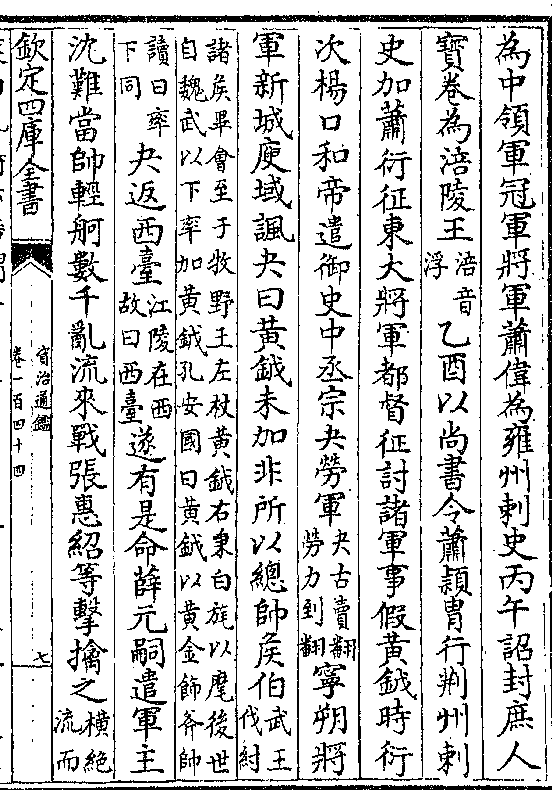 為中領軍冠軍將軍蕭偉為雍州刺史丙午詔封庶人
寶卷為涪陵王涪音浮乙酉以尚書令蕭穎胄行荆州刺
史加蕭衍征東大將軍都督征討諸軍事假黄鉞時衍
次楊口和帝遣御史中丞宗夬勞軍夬古賣翻勞力到翻寧朔將
軍新城庾域諷夬曰黄鉞未加非所以總帥侯伯武王伐紂
諸侯畢會至于牧野王左杖黄鉞右秉白旄以麾後世
自魏武以下率加黄鉞孔安國曰黄鉞以黄金飾斧帥
讀曰率下同夬返西臺江陵在西故曰西臺遂有是命薛元嗣遣軍主
沈難當帥輕舸數千亂流來戰張惠紹等擊擒之横絶流而
欽定四庫全書
資治通鑑
卷一百四十四
七